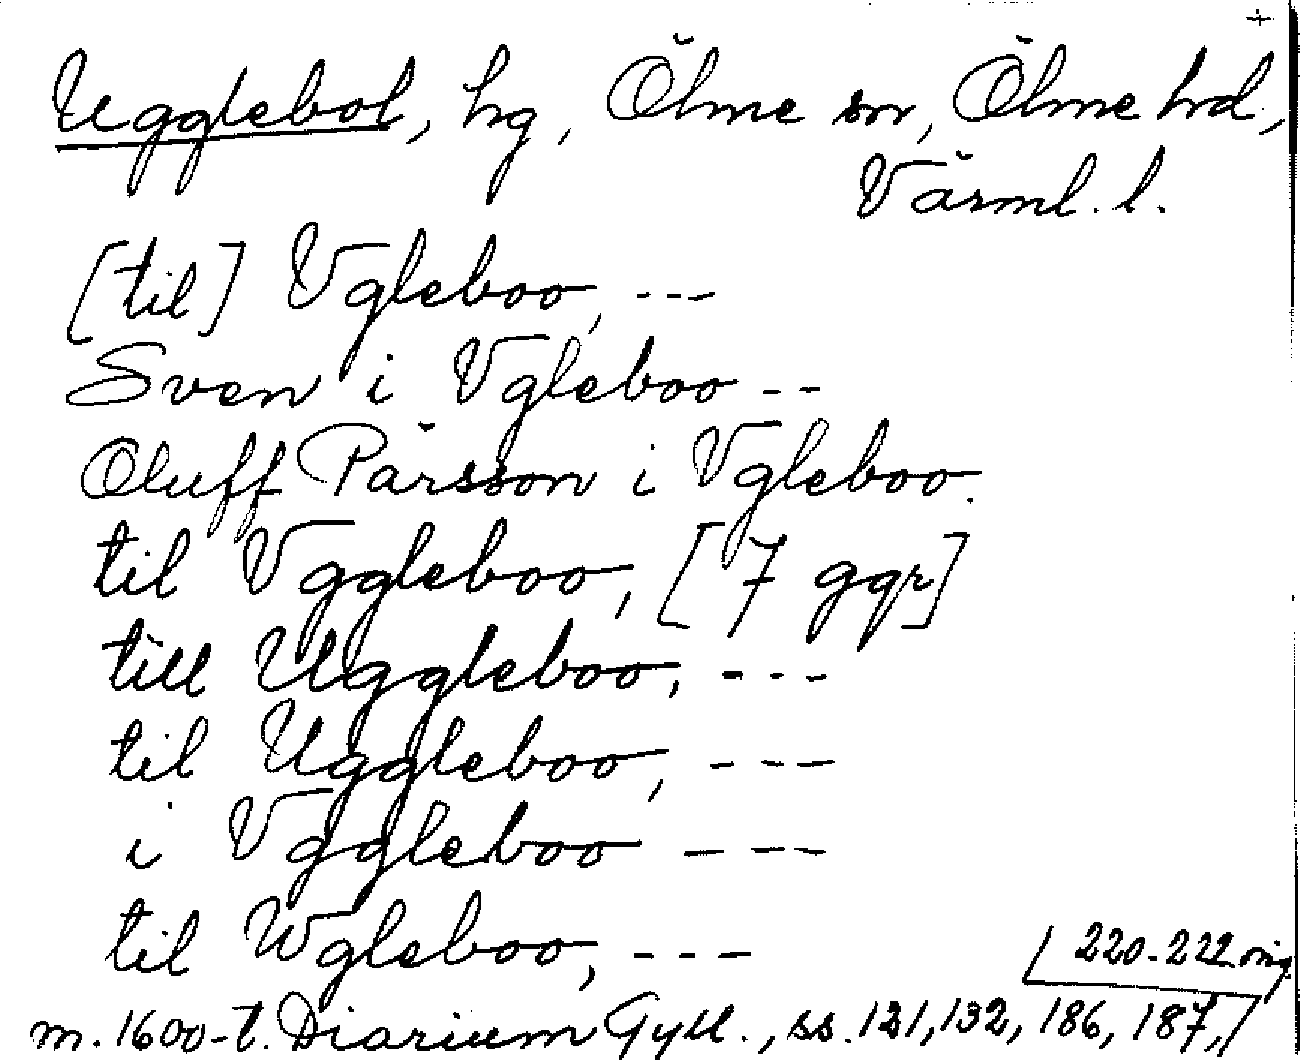 +
Ugglebol, hg, Ölme sn, Ölme hd,
Värml. l.
[til] Vgleboo, ---
Sven i Vgleboo --
Oluff Pärsson i Vgleboo.
til Vggleboo, [7 ggr]
till Uggleboo, ---
til Uggleboo, ---
i Vggleboo ---
til Wgleboo, ---
220-222
m. 1600-t. Diarium Gyll., ss. 121, 132, 186, 187,